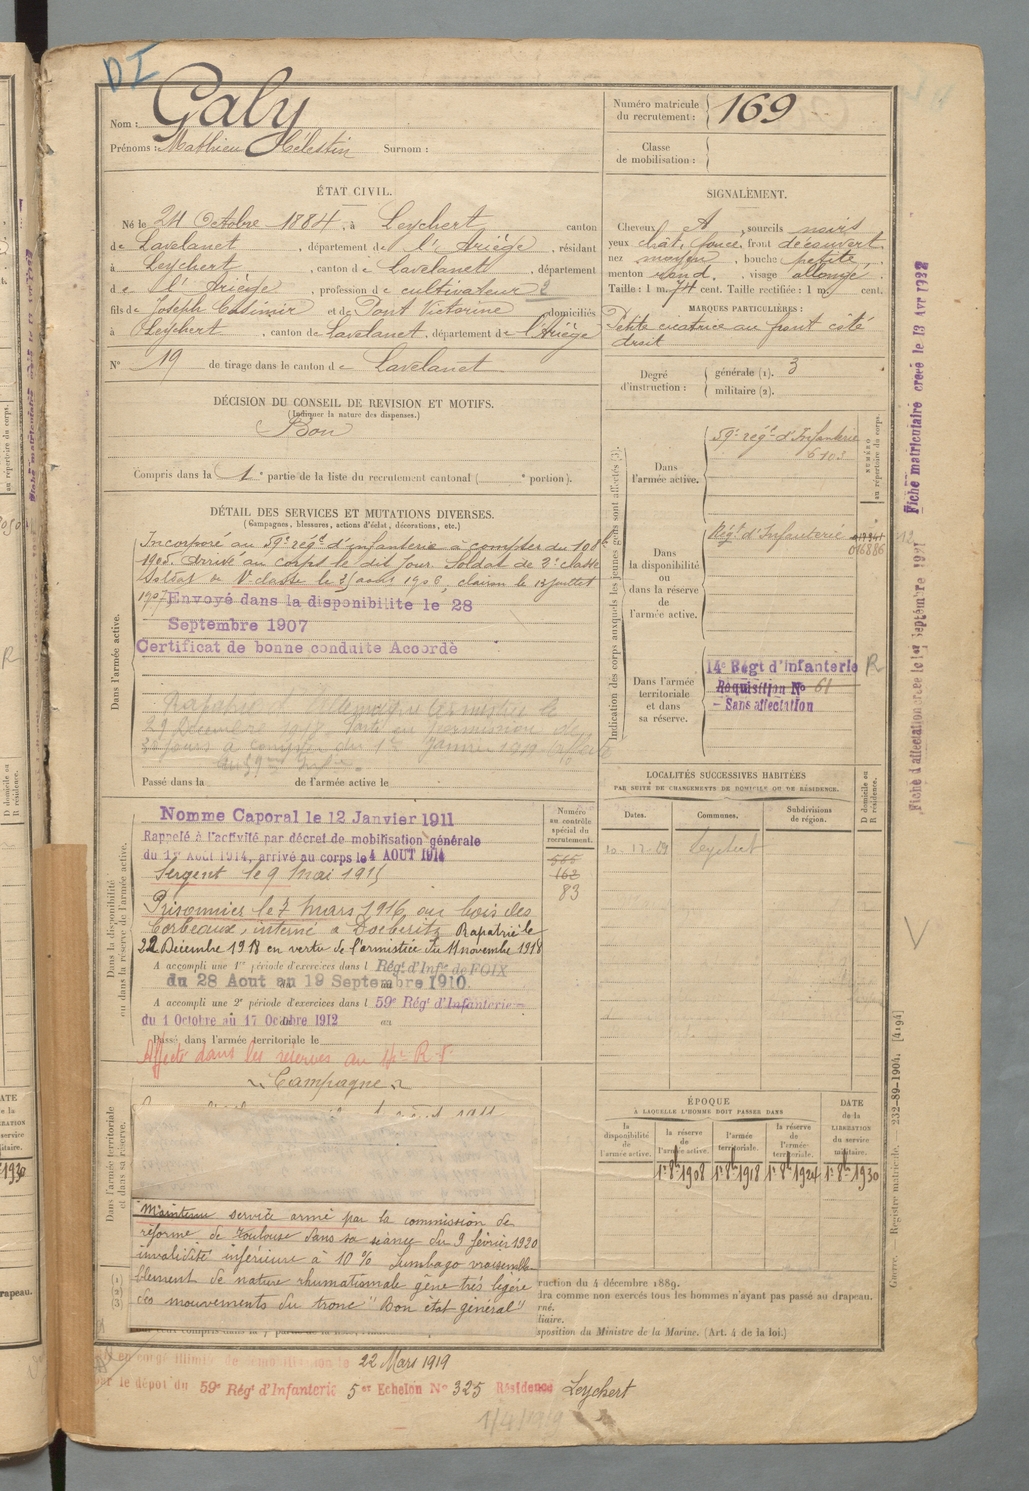 DI
Nom : Galy
Prénoms : Mathieu Célestin Surnom :
Numéro matricule du recrutement : 169
Classe de mobilisation :
ÉTAT CIVIL.
Né le 24 Octobre 1884, à Leychert canton
de Lavelanet, département de l'Ariège, résidant
à Leychert, canton de Lavelanet, département
de l'Ariège, profession de cultivateur 2
fils de Joseph Casimir et de Pont Victorine domiciliés
à Leychert, canton de Lavelanet, département de l'Ariège
N° 19 de tirage dans le canton de Lavelanet
SIGNALEMENT.
Cheveux , sourcils noirs
yeux chât. foncé, front découvert
nez moyen, bouche petite,
menton rond, visage allongé.
Taille : 1 m. 74 cent. Taille rectifiée : 1 m. cent.
MARQUES PARTICULIÈRES :
Petite cicatrice au front côté
droit
Degré d'instruction : générale (1). 3
militaire (2).
DÉCISION DU CONSEIL DE REVISION ET MOTIFS.
(Indiquer la nature des dispenses.)
Bon
Compris dans la 1e partie de la liste du recrutement cantonal ( e portion).
DÉTAIL DES SERVICES ET MUTATIONS DIVERSES.
(Campagnes, blessures, actions d'éclat, décorations, etc.)
Dans l'armée active.
Incorporé au 59e régt d'infanterie à compter du 10 8bre
1905. Arrivé au corps le dit jour. Soldat de 2e classe
Soldat de 1e classe le 25 août 1906, clairon le 13 juillet
1907 Envoyé dans la disponibilite le 28
Septembre 1907
Certificat de bonne conduite Accordè
29 Décembre 1918
30 jours à compter du 1er Janvier 1919
Passé dans la de l'armée active le
Indication des corps auxquels les jeunes gens sont affectés (3).
NUMÉRO au répertoire du corps.
Dans l'armée active.
59e régt d'Infanterie
6103
Dans la disponibilité ou dans la réserve de l'armée active.
Régt d'Infanterie
016886
Dans l'armée territoriale et dans sa réserve.
14e Régt d'infanterie R
Réquisition N° 61
– Sans affectation
Dans la disponibilité ou dans la réserve de l'armée active.
Nomme Caporal le 12 Janvier 1911
Rappelé à l'activité par décret de mobilisation générale
du 1er AOUT 1914, arrivé au corps le 4 AOUT 1914
Sergent le 9 Mai 1915
Prisonnier le 7 Mars 1916 au bois des
Corbeaux, interné à Doeberitz Rapatrié le
22 Décembre 1918 en vertu de l'armistice du 11 novembre 1918
A accompli une 1re période d'exercices dans l Régt d'Infie de FOIX
du 28 Aout au 19 Septembre 1910
A accompli une 2e période d'exercices dans l 59e Régt d'Infanterie
du 1 Octobre au 17 Octobre 1912
Passé dans l'armée territoriale le
Affecté dans les réserves au 14e R.I.
Numéro au contrôle spécial du recrutement.
565
162
83
LOCALITÉS SUCCESSIVES HABITÉES
PAR SUITE DE CHANGEMENTS DE DOMICILE OU DE RÉSIDENCE.
Dates. Communes. Subdivisions de région. D domicile ou R résidence.
Leychert
Dans l'armée territoriale et dans sa réserve.
Campagne
Maintenu service armé par la commission de
réforme de Toulouse dans sa séance du 9 février 1920
invalidité inférieure à 10 % Lumbago vraisembla-
blement de nature rhumatismale gêne très légère
des mouvements du tronc "Bon état général"
ÉPOQUE
À LAQUELLE L'HOMME DOIT PASSER DANS
la disponibilité de l'armée active.
la réserve de l'armée active.
l'armée territoriale.
la réserve de l'armée territoriale.
DATE de la LIBÉRATION du service militaire.
1er 8bre 1908 1er 8bre 1918 1er 8bre 1924 1er 8bre 1930
ruction du 4 décembre 1889.
dra comme non exercés tous les hommes n'ayant pas passé au drapeau.
rné.
liaire.
sposition du Ministre de la Marine. (Art. 4 de la loi.)
en congé illimité de démobilisation le 22 Mars 1919
le dépot du 59e Régt d'Infanterie 5er Echelon N° 325 Résidence Leychert
1/4/1919
Fiche matriculaire créée le 13 Avr 1932
Fiche d'affectation créée le 1er Septembre 1921
Guerre. — Registre matricule. — 232-89-1904. [4194]